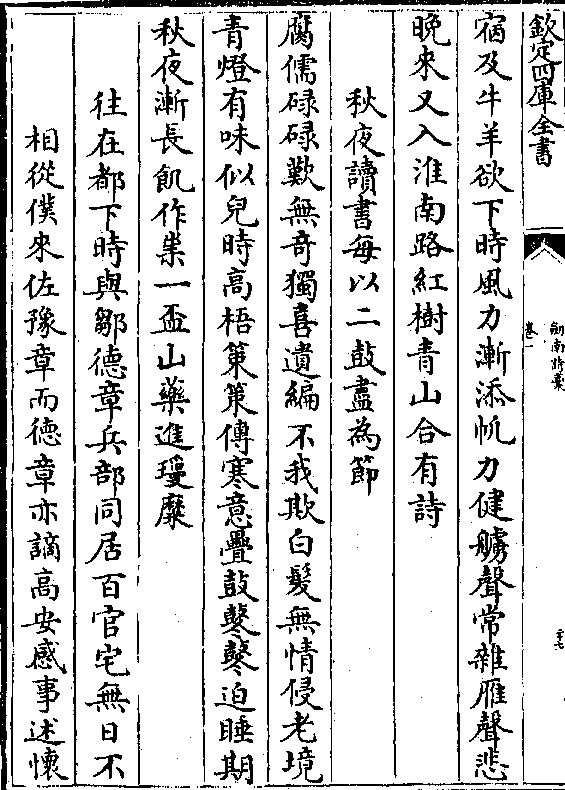 欽定四庫全書
劍南詩稾
卷一
二十七
宿及牛羊欲下時風力漸添帆力健艣聲常雜雁聲悲
晚來又入淮南路紅樹青山合有詩
秋夜讀書每以二鼓盡為節
腐儒碌碌歎無竒獨喜遺編不我欺白髮無情侵老境
青燈有味似兒時高梧策策傳寒意疊鼓鼕鼕迫睡期
秋夜漸長飢作祟一盃山藥進瓊糜
往在都下時與鄒德章兵部同居百官宅無日不
相從僕來佐豫章而德章亦謫高安感事述懷